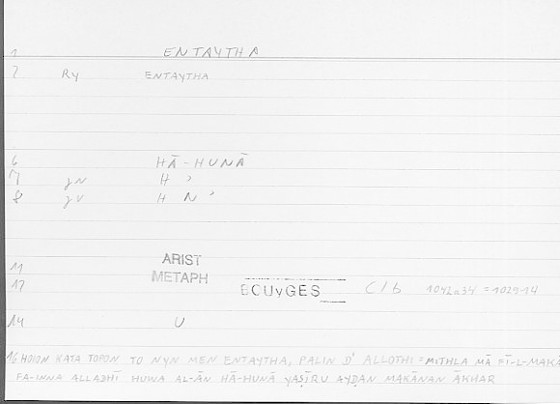 1 ENTAYTHA
2 Ry ENTAYTHA
6 HĀ-HUNĀ
7 gN H ʾ
8 gV H N ʾ
11 ARIST
12 METAPH BOUYGES C/b 1042a34 = 1029-14
14 U
16 HOION KATA TOPON TO NYN MEN ENTAYTHA, PALIN D' ALLOTHI = MITHLA MĀ FĪ-L-MAKĀ
FA-INNA ALLADHĪ HUWA AL-ĀN HĀ-HUNĀ YAṢĪRU AYḌAN MAKĀNAN ĀKHAR